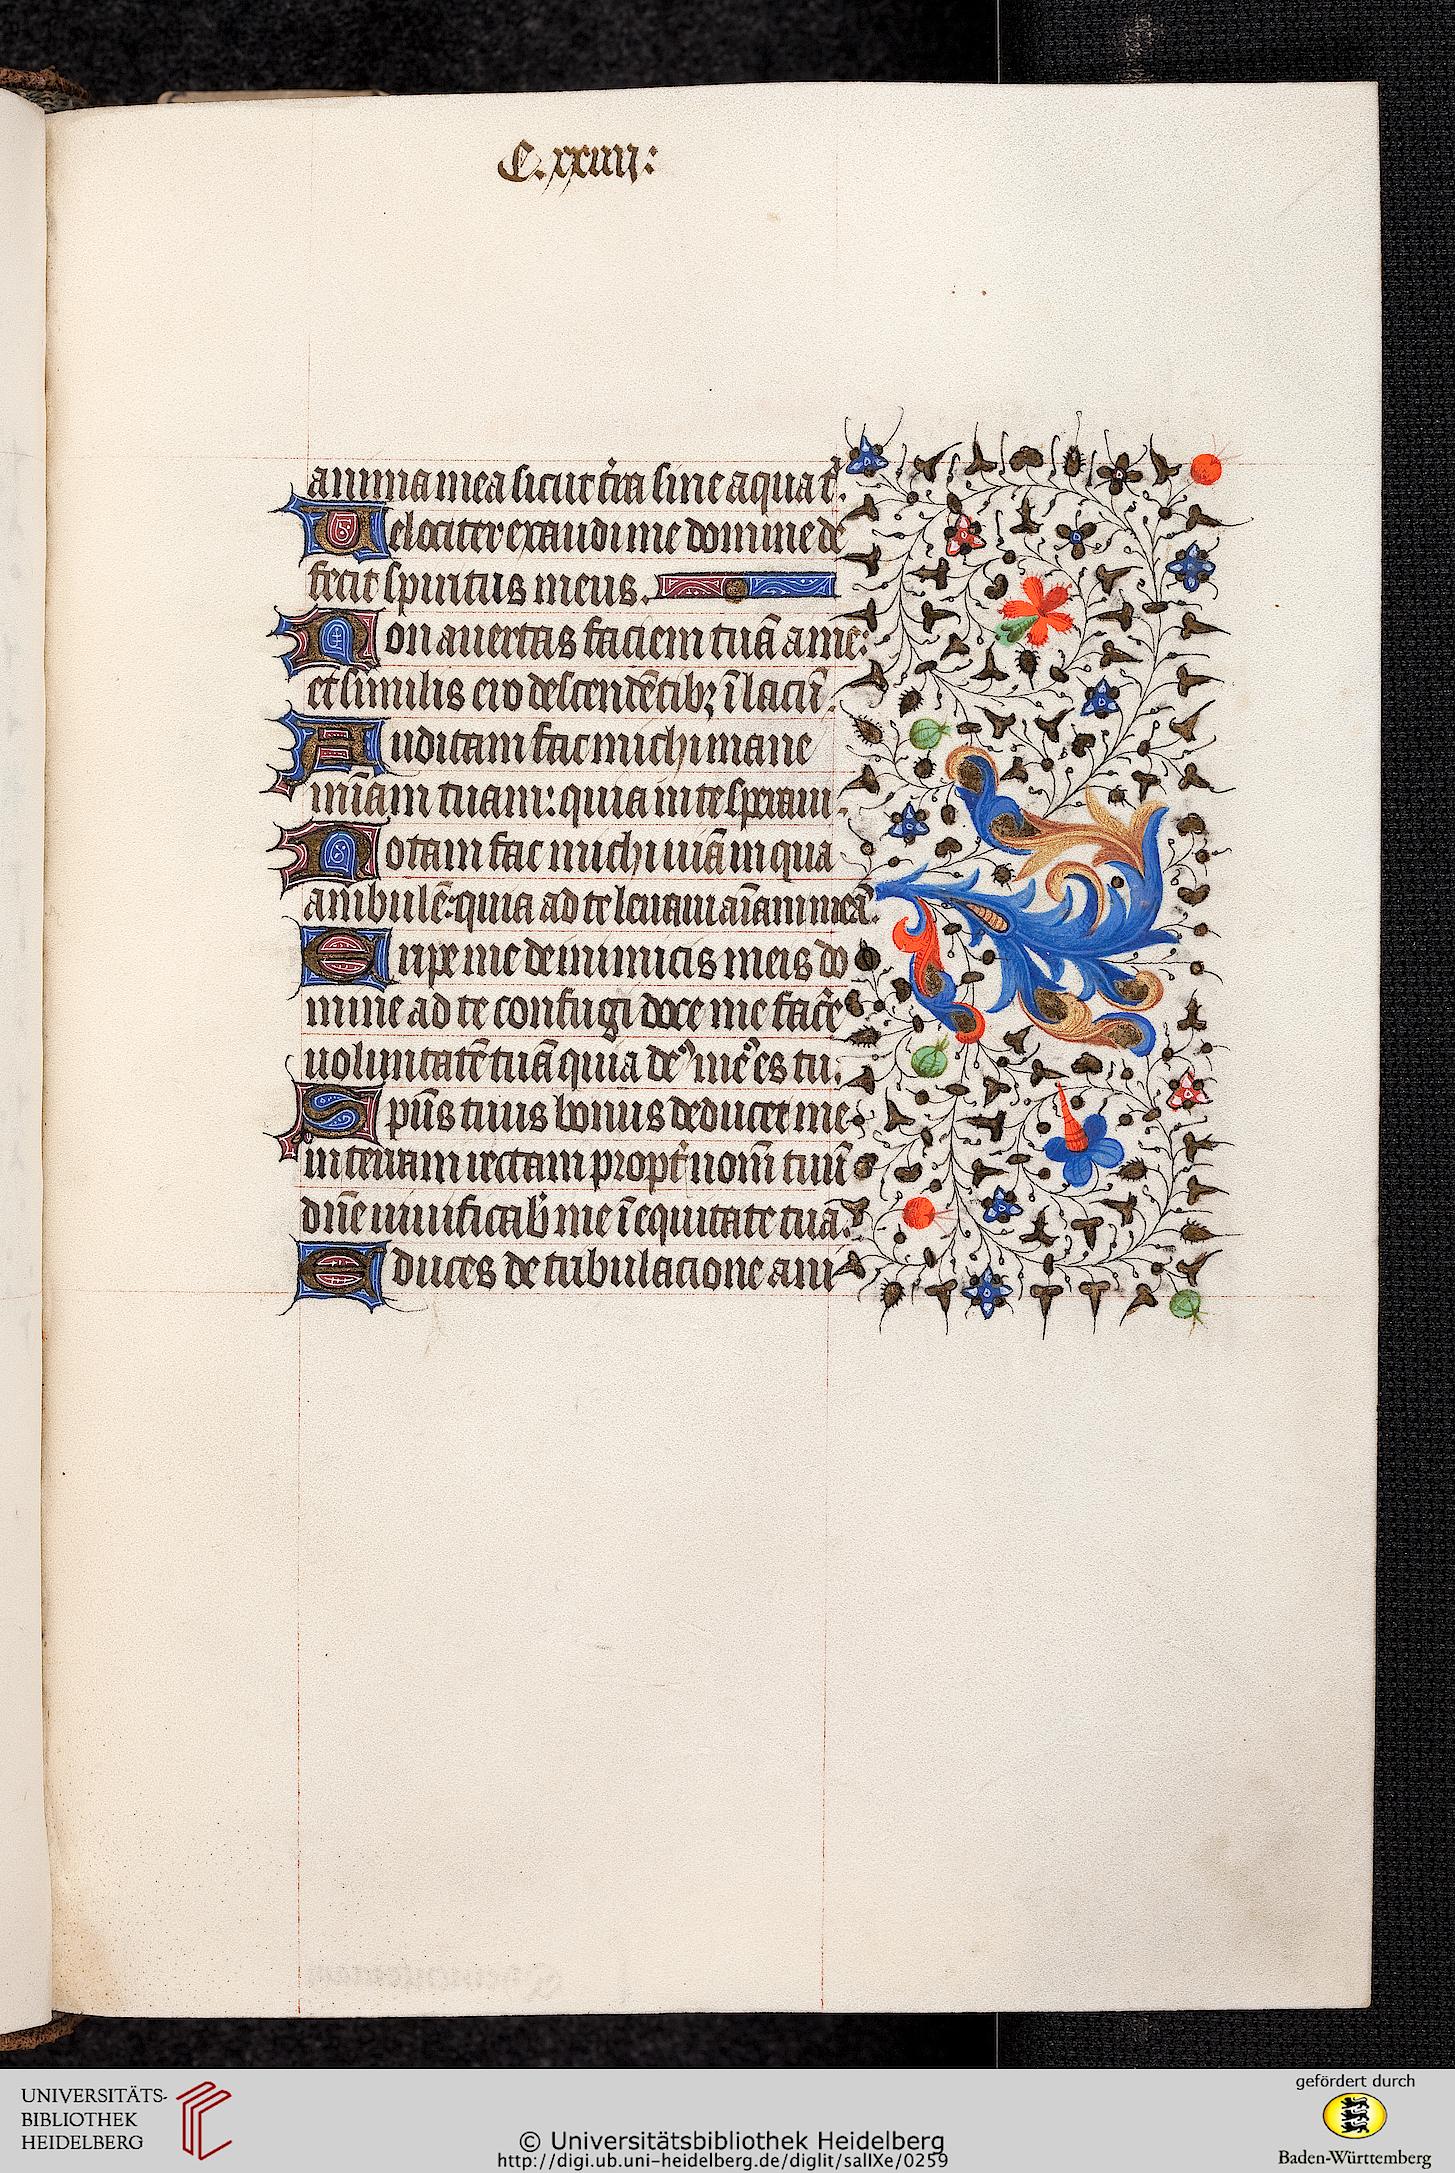 C.xxiiij:
anima mea sicut t̄ra sine aqua t̾.
Uelociter exaudi me domine de
fecit spiritus meus.
Non auertas faciem tuā a me:
et similis ero descendētibꝫ ī lacū.
Auditam fac michi mane
mīam tuam: quia in te speraui.
Notam fac michi uiā in qua
ambulē: quia ad te leuaui aīam meā.
Eripe me de inimicis meis do
mine ad te confugi doce me fac̄e
uoluntatē tuā quia deꝰ meꝰ es tu.
Spūs tuus bonus deducet me
in terram rectam propt̾ nom̄ tuū
dn̄e uiuificab̾ me ī equitate tua.
Educes de tribulacione ani
UNIVERSITÄTS-
BIBLIOTHEK
HEIDELBERG
© Universitätsbibliothek Heidelberg
http://digi.ub.uni-heidelberg.de/diglit/salIXe/0259
gefördert durch
Baden-Württemberg